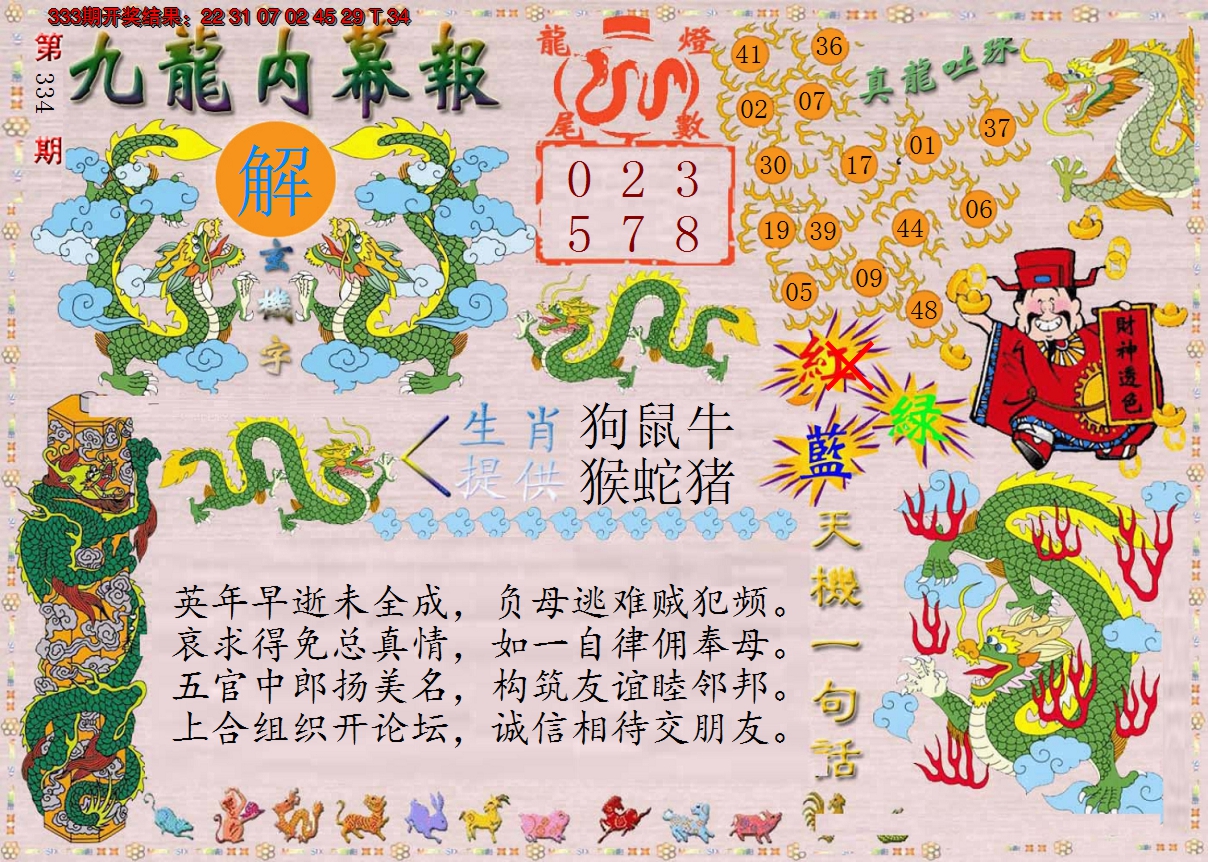 333期开奖结果：22 31 07 02 45 29 T 34
第
334
期
九龍内幕報
解
玄
機
字
龍 燈
尾 數
0 2 3
5 7 8
真龍吐珠
41 36
02 07
01 37
30 17
19 39 44 06
05 09 48
財神透色
紅
緑
藍
生肖 狗鼠牛
提供 猴蛇猪
天機一句话
英年早逝未全成，负母逃难贼犯频。
哀求得免总真情，如一自律佣奉母。
五官中郎扬美名，构筑友谊睦邻邦。
上合组织开论坛，诚信相待交朋友。